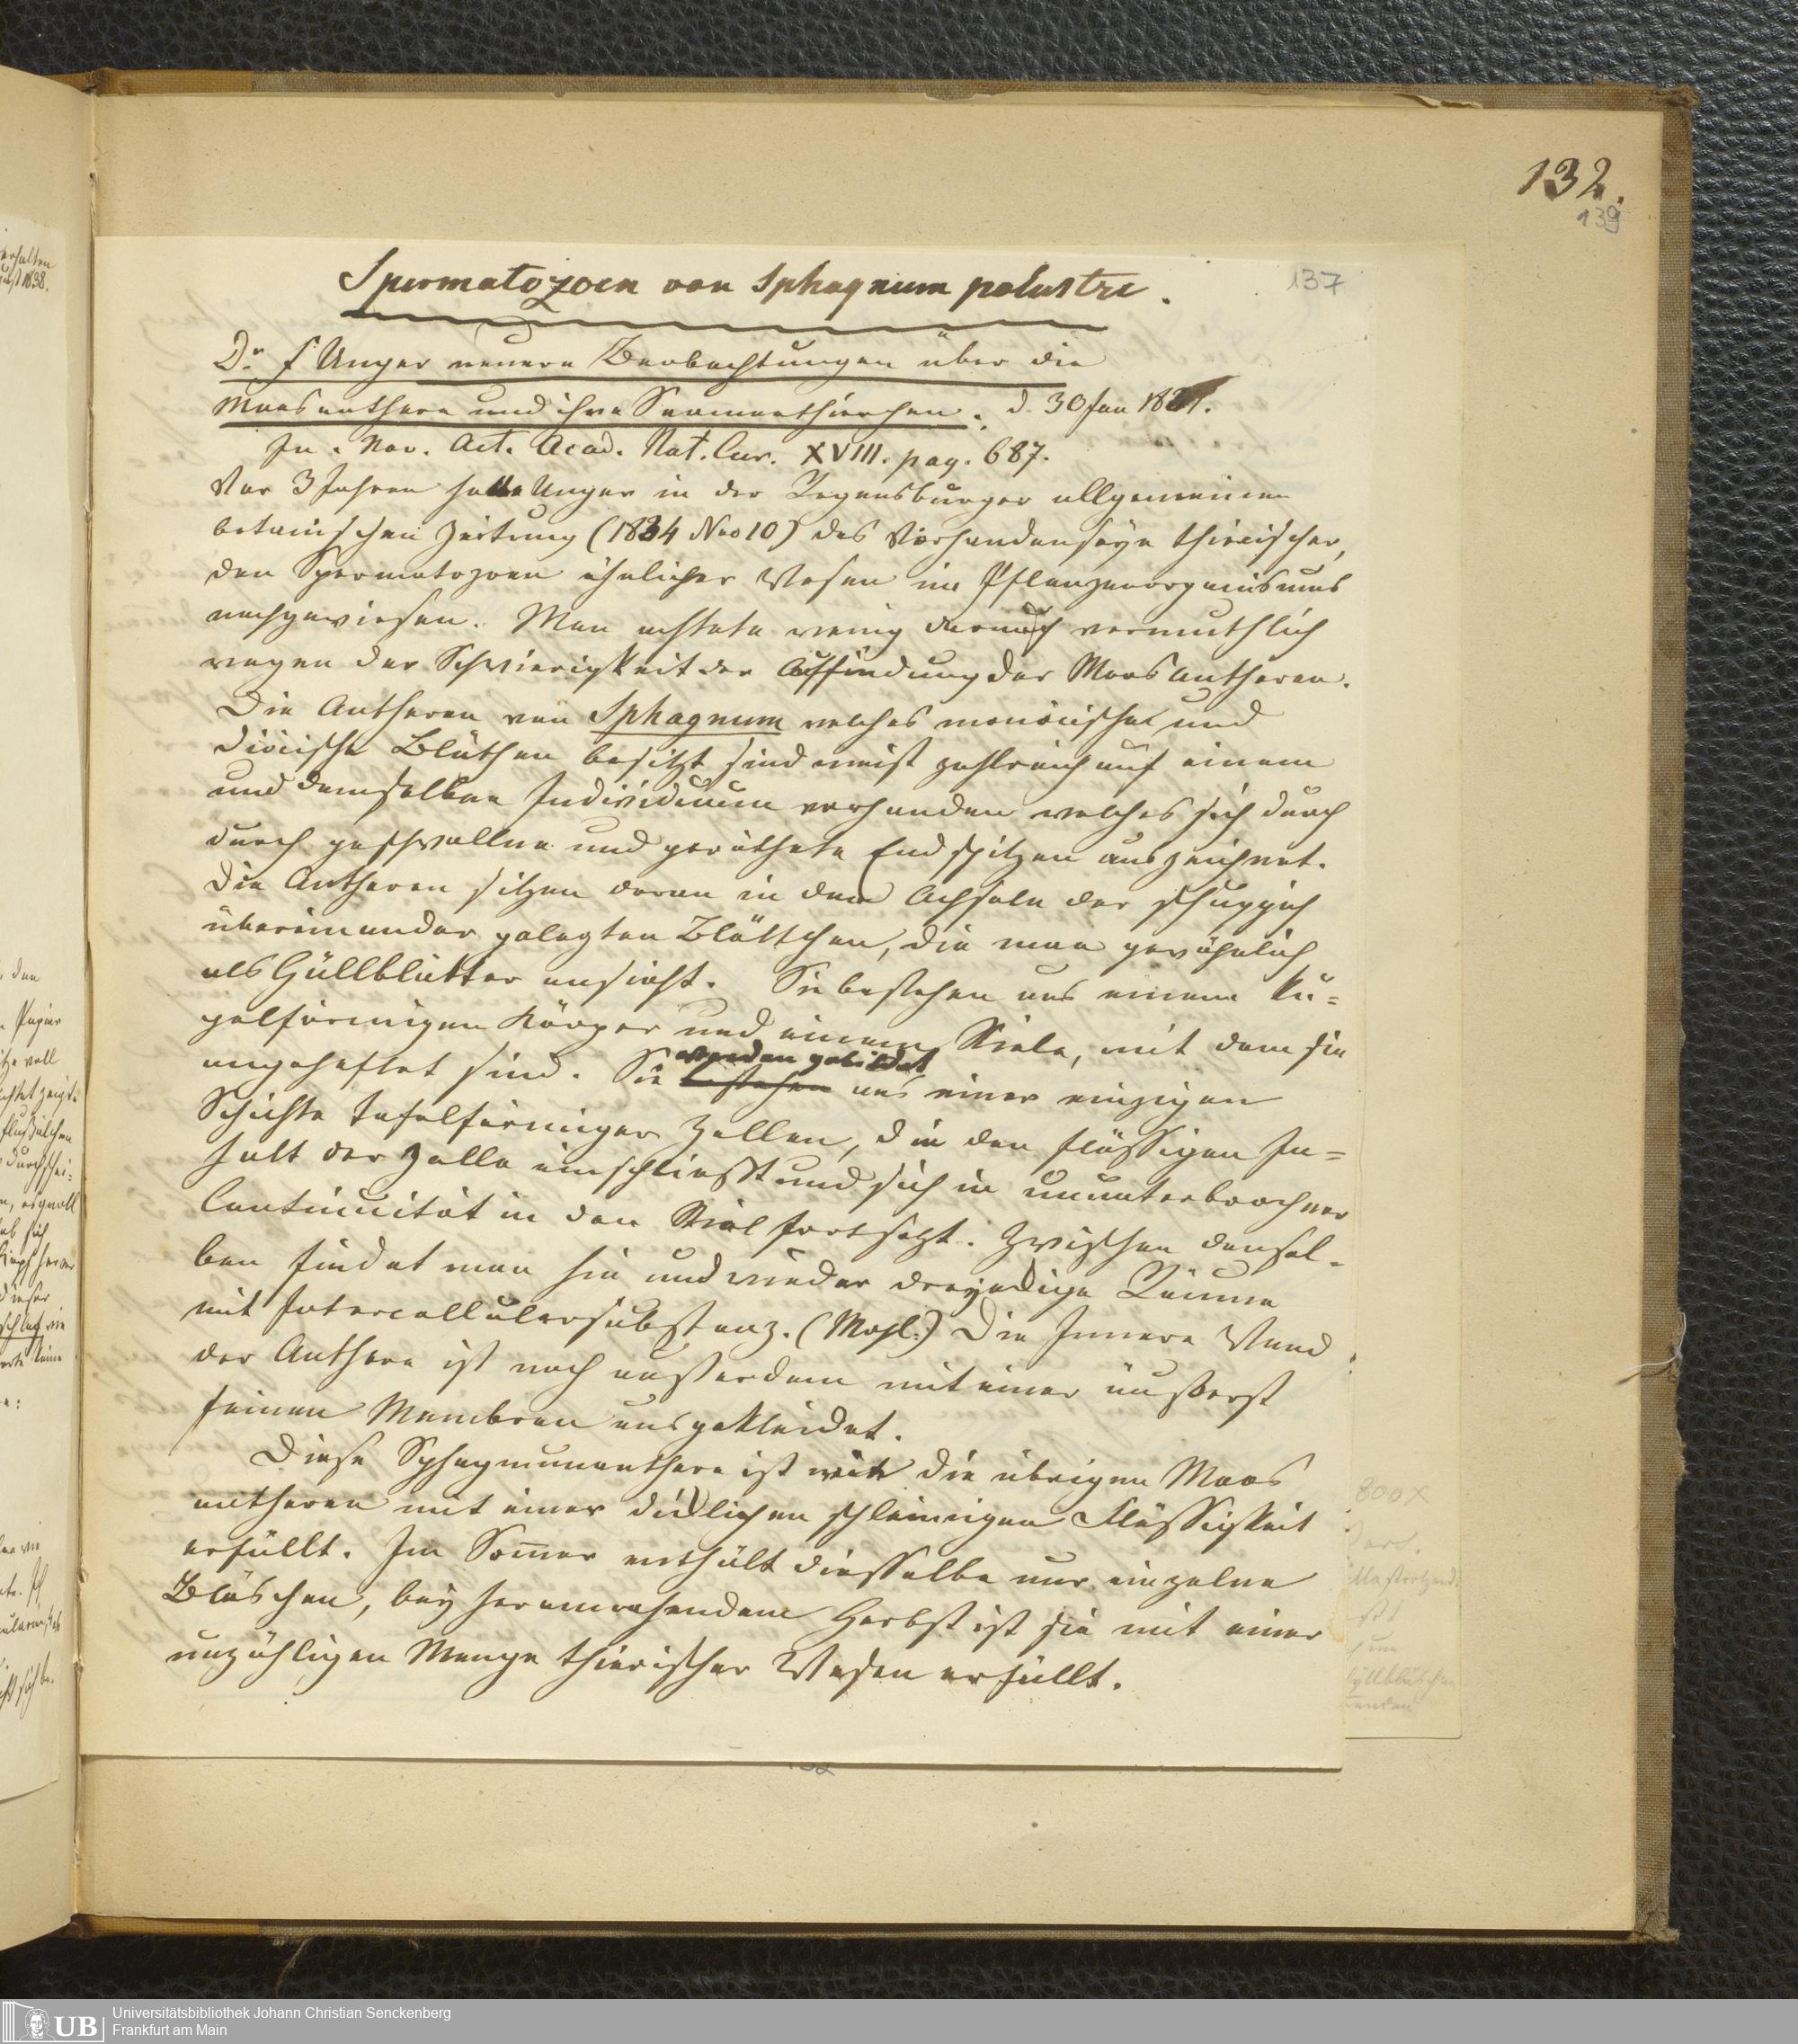 132.
139
137
Spermatozoen von Sphagnum palustre.
Dr. F Unger neuere Beobachtungen über die
Moosanthere und ihre Saamenthierchen. d. 30 Jan
In. Nov. Act. Acad. Nat. Cur. XVIII. pag. 687.
Vor 3 Jahren hatte Unger in der Regensburger allgemeinen
botanischen Zeitung (1834 Nro 10) das Vorhandenseyn thierischer,
den Spermatozoen ähnlicher Wesen im Pflanzenorganismus
nachgewiesen. Man achtete wenig darauf vermuthlich
wegen der Schwierigkeit der Auffindung der Moosantheren.
Die Antheren von Sphagnum welches monöcische und
diöcische Blüthen besitzt sind meist zahlreich auf einem
und demselben Individuum vorhanden welches sich durch
durch geschwollne und geröthete Endspitzen auszeichnet.
Die Antheren sitzen daran in den Achseln der schuppig
übereinander gelegten Blättchen, die man gewöhnlich
als Hüllblätter ansieht. Sie bestehen aus einem ku=
gelförmigen Körper und einem Stiele, mit dem sie
angeheftet sind. Sie bestehen werden gebildet aus einer einzigen
Schichte tafelförmiger Zellen, die den flüssigen In=
halt der Zelle einschliesst und sich in ununterbrochner
Continuität in den Stiel fortsetzt. Zwischen densel-
ben findet man hie und wieder dreyeckige Räume
mit Intercellularsubstanz. (Mohl.) Die Innere Wand
der Anthere ist noch ausserdem mit einer äusserst
feinen Membran ausgekleidet.
Diese Sphagnumanthere ist wie die übrigen Moos
antheren mit einer dicklichen schleimigen Flüssigkeit
erfüllt. Im Sommer enthält diesselbe nur einzelne
Bläschen, bey herannahendem Herbst ist sie mit einer
unzähligen Menge thierischer Wesen erfüllt.
800 X
UB
Universitätsbibliothek Johann Christian Senckenberg
Frankfurt am Main